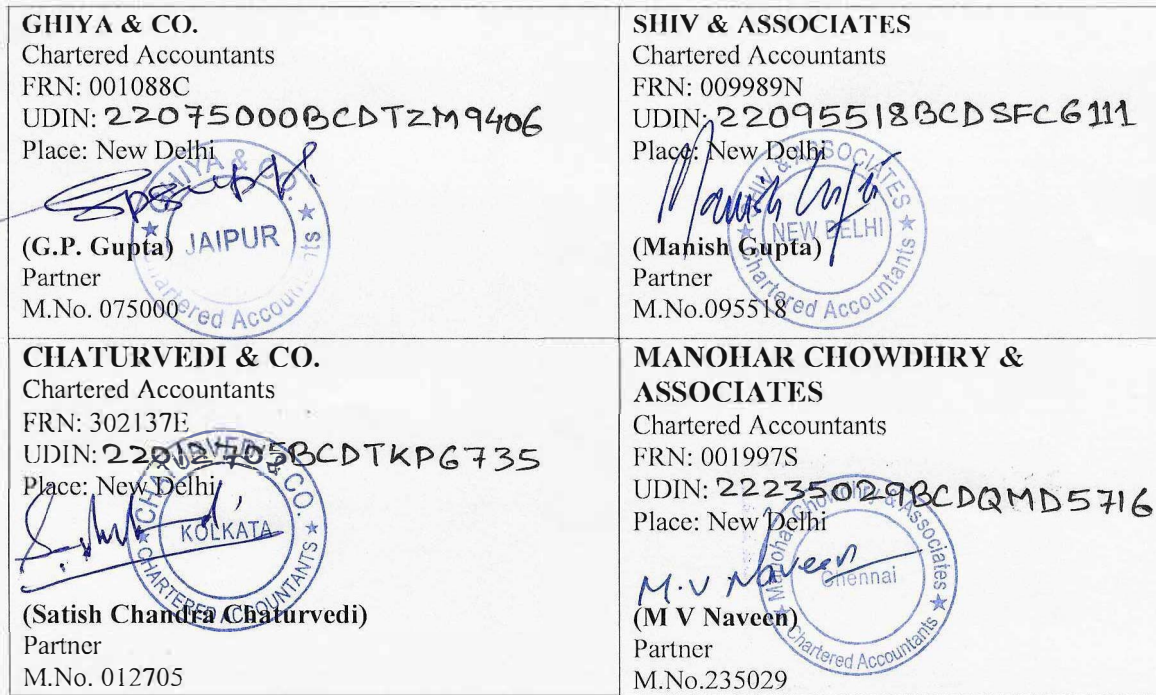 GHIYA & CO.
Chartered Accountants
FRN: 001088C
UDIN: 22075000BCDTZM9406
Place: New Delhi
GHIYA & CO.
JAIPUR
Chartered Accountants
(G.P. Gupta)
Partner
M.No. 075000
SHIV & ASSOCIATES
Chartered Accountants
FRN: 009989N
UDIN: 22095518BCDSFC6111
Place: New Delhi
SHIV & ASSOCIATES
Manish Gupta
NEW DELHI
Chartered Accountants
(Manish Gupta)
Partner
M.No.095518
CHATURVEDI & CO.
Chartered Accountants
FRN: 302137E
UDIN: 22012705BCDTKP6735
Place: New Delhi
CHATURVEDI & CO.
KOLKATA
CHARTERED ACCOUNTANTS
(Satish Chandra Chaturvedi)
Partner
M.No. 012705
MANOHAR CHOWDHRY &
ASSOCIATES
Chartered Accountants
FRN: 001997S
UDIN: 22235029BCDQMD5716
Place: New Delhi
Manohar Chowdhry & Associates
M.V Naveen
Chennai
Chartered Accountants
(M V Naveen)
Partner
M.No.235029